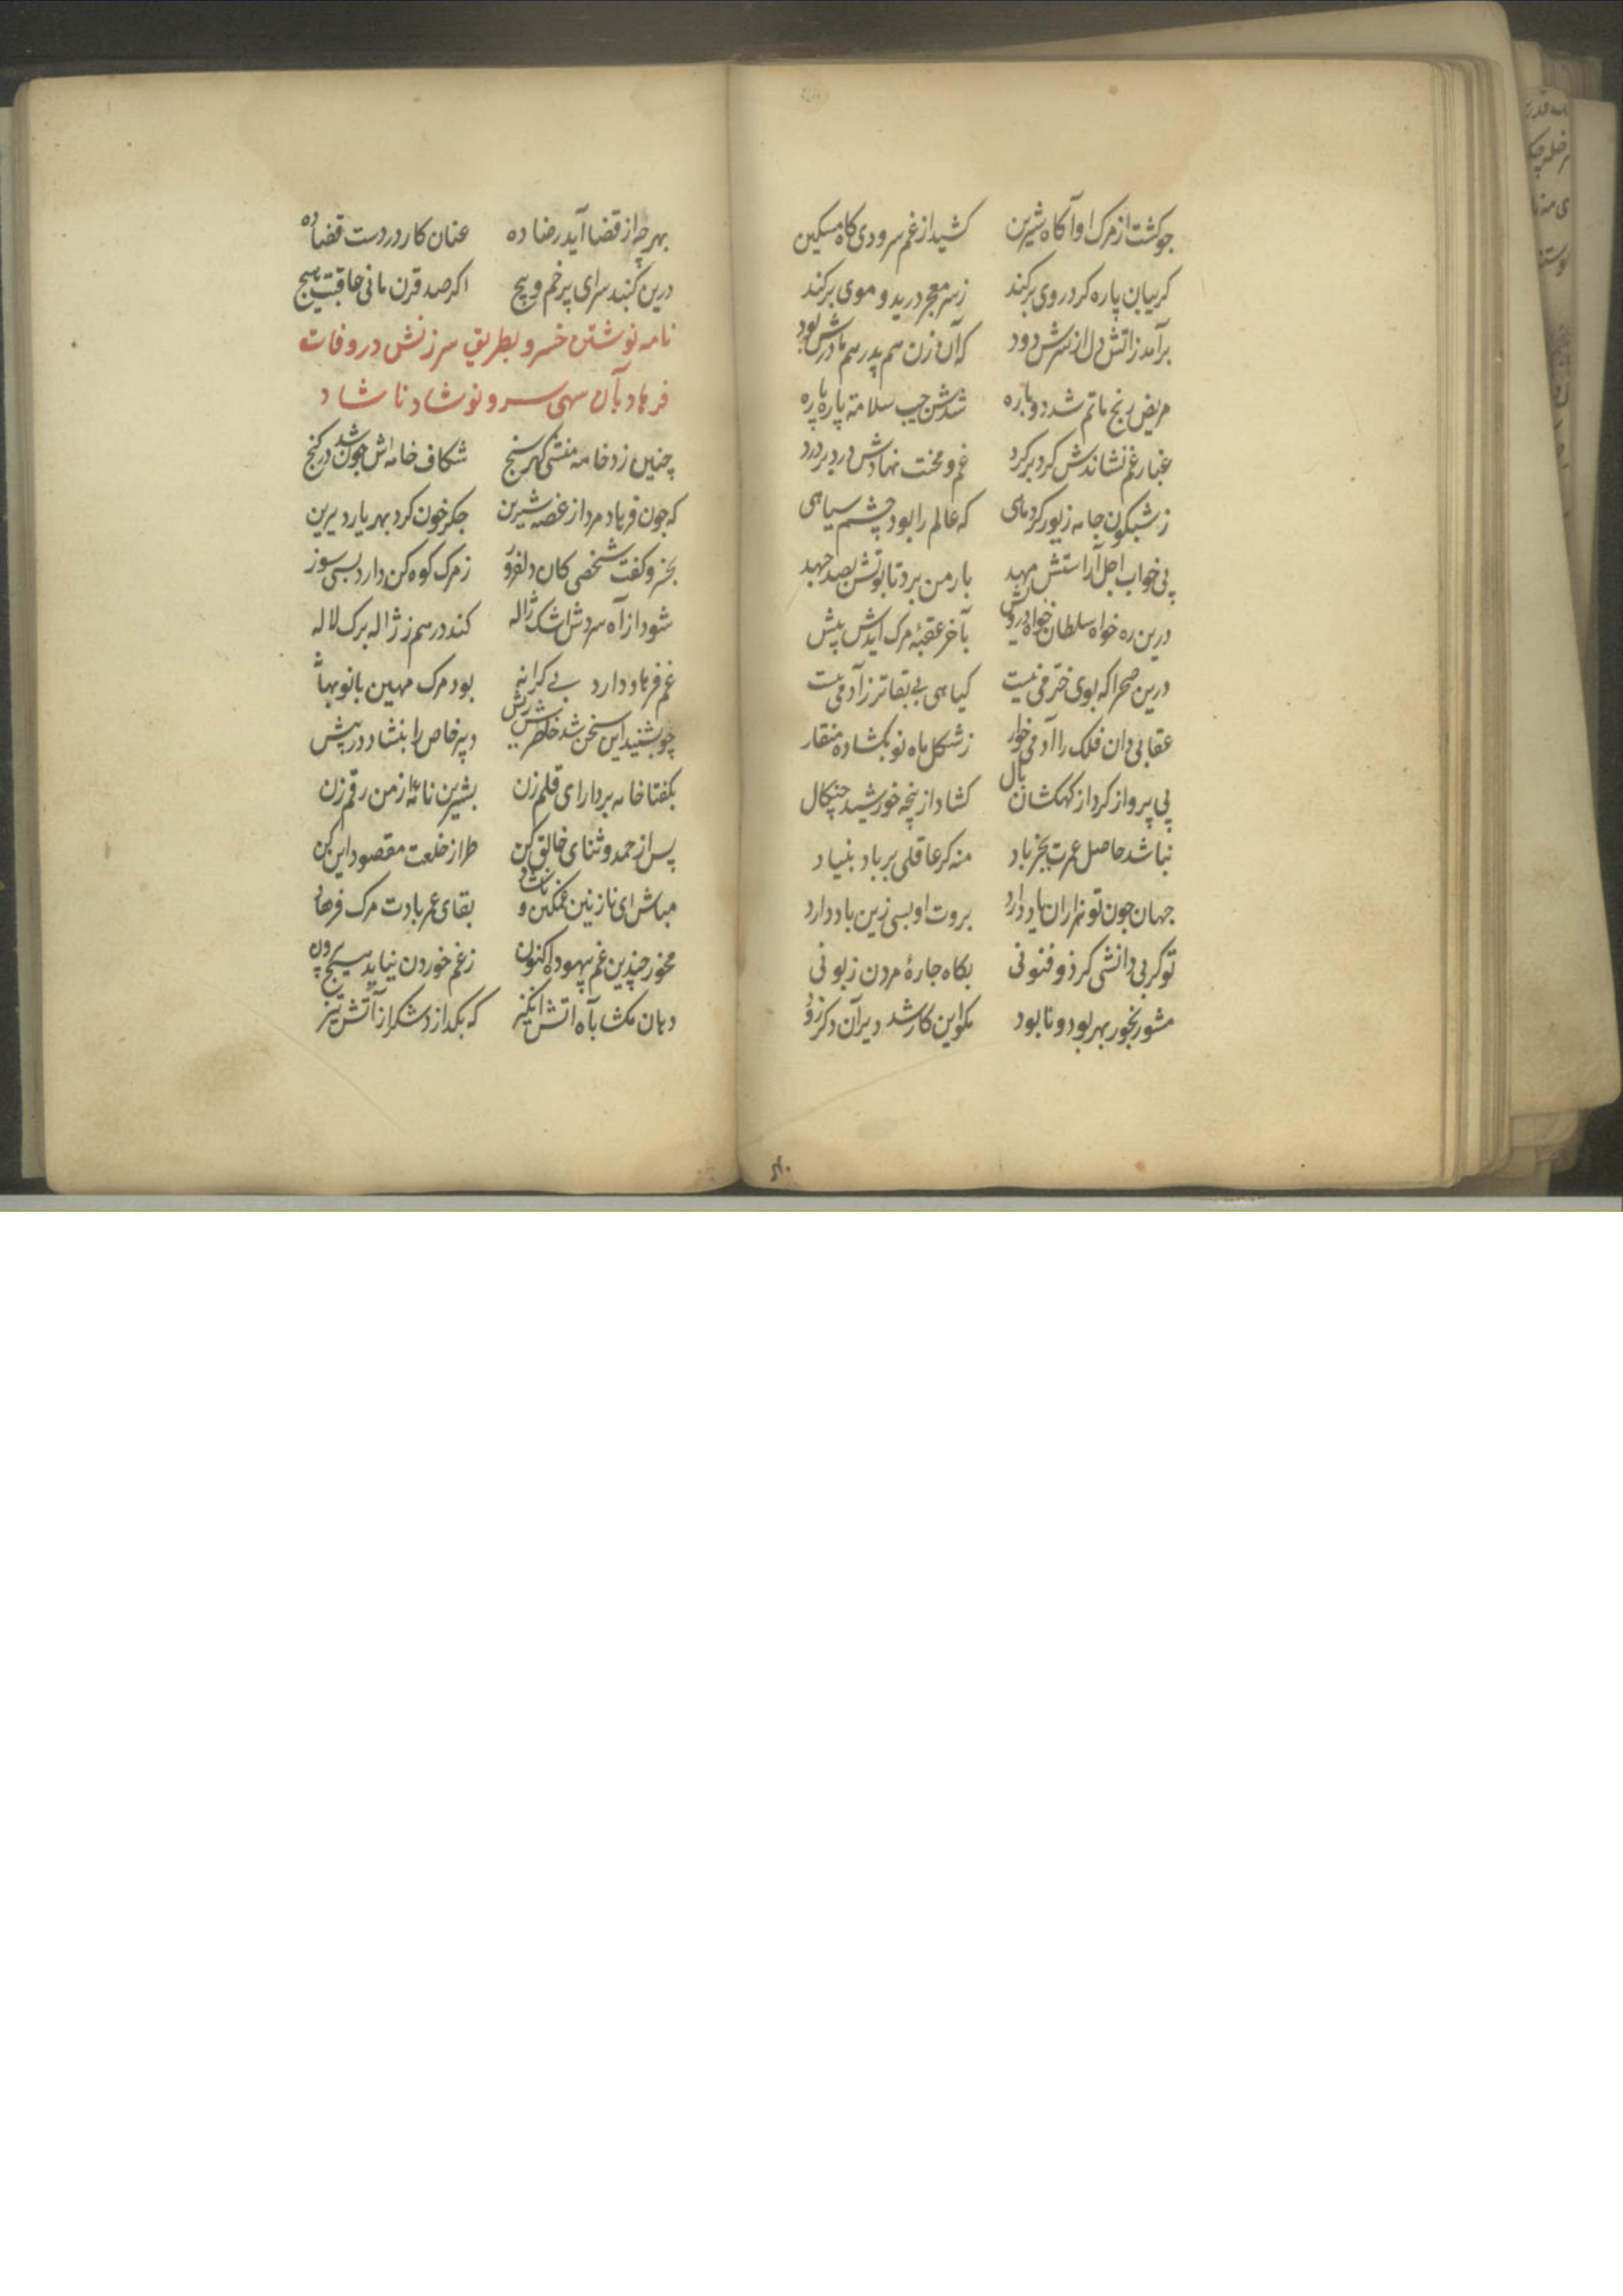 جو کشت از مرک او آکاه شیرین کشید از غم سرودی کاه مسکین
کریبان پاره کرد روی برکند ز سر معجر درید و موی برکند
برآمد ز اتش دل از سرش دود که آن زن هم پدر هم مادرش بود
مریض رنج ماتم شد دوباره شدش جیب سلامة پاره پاره
غبار غم نشاندش کرد بر کرد غم و محنت نهادش درد بر درد
ز شبکون جامه زیور کرد مای که عالم را بود چشم سیاهی
پی خواب اجل آراستش مهد بارمن برد تابوتش بصد جهد
درین ره خواه سلطان خواه درویش بآخر عقبهٔ مرک ایدش پیش
درین صحرا که بوی خرمی نیست کیاهی بی بقاتر ز آدمی نیست
عقابی دان فلک را آدمی خوار ز شکل ماه نو بکشاده منقار
پی پرواز کرد از کهکشان بال کشاد از پنجه خورشید چنکال
نباشد حاصل عمرت بجز باد منه کر عاقلی بر باد بنیاد
جهان جون تو هزاران یاد دارد بروت او بسی زین باد دارد
تو کر بی دانشی کر ذو فنونی بکاه جارهٔ مردن زبونی
مشو رنجور بهر بود و نابود مکو این کار شد دیر آن دکر زود
بهر چه از قضا آید رضا ده عنان کار در دست قضا ده
درین کنبد سرای پر خم و پیچ اکر صد قرن مانی عاقبت هیچ
نامه نوشتن خسرو بطریق سرزنش در وفات
فرهاد بآن سهی سرو نوشاد ناشاد
چنین زد خامه منشی کهر سنج شکاف خامه اش جون شد در کنج
که جون فرهاد مرد از غصه شیرین جکر خون کرد بهر یار دیرین
بخسرو کفت شخصی کان دلفروز ز مرک کوه کن دارد بسی سوز
شود از آه سردش اشک ژاله کند در هم ز ژاله برک لاله
غم فرهاد دارد بے کرانه بود مرک مهین بانو بهانه
چو بشنید این سخن شد خاطرش ریش دبیر خاص را بنشاد در پیش
بکفتا خامه بردار ای قلم زن بشیرین نامهٔ از من رقم زن
پس از حمد و ثنای خالق کن طراز خلعت مقصود این کن
مباش ای نازنین غمکین و ناشاد بقای عمر بادت مرک فرهاد
مخور چندین غم بیهوده اکنون ز غم خوردن نیاید هیچ بیرون
دهان مکشا بآه اتش انکیز که بکدازد شکر از آتش تیز